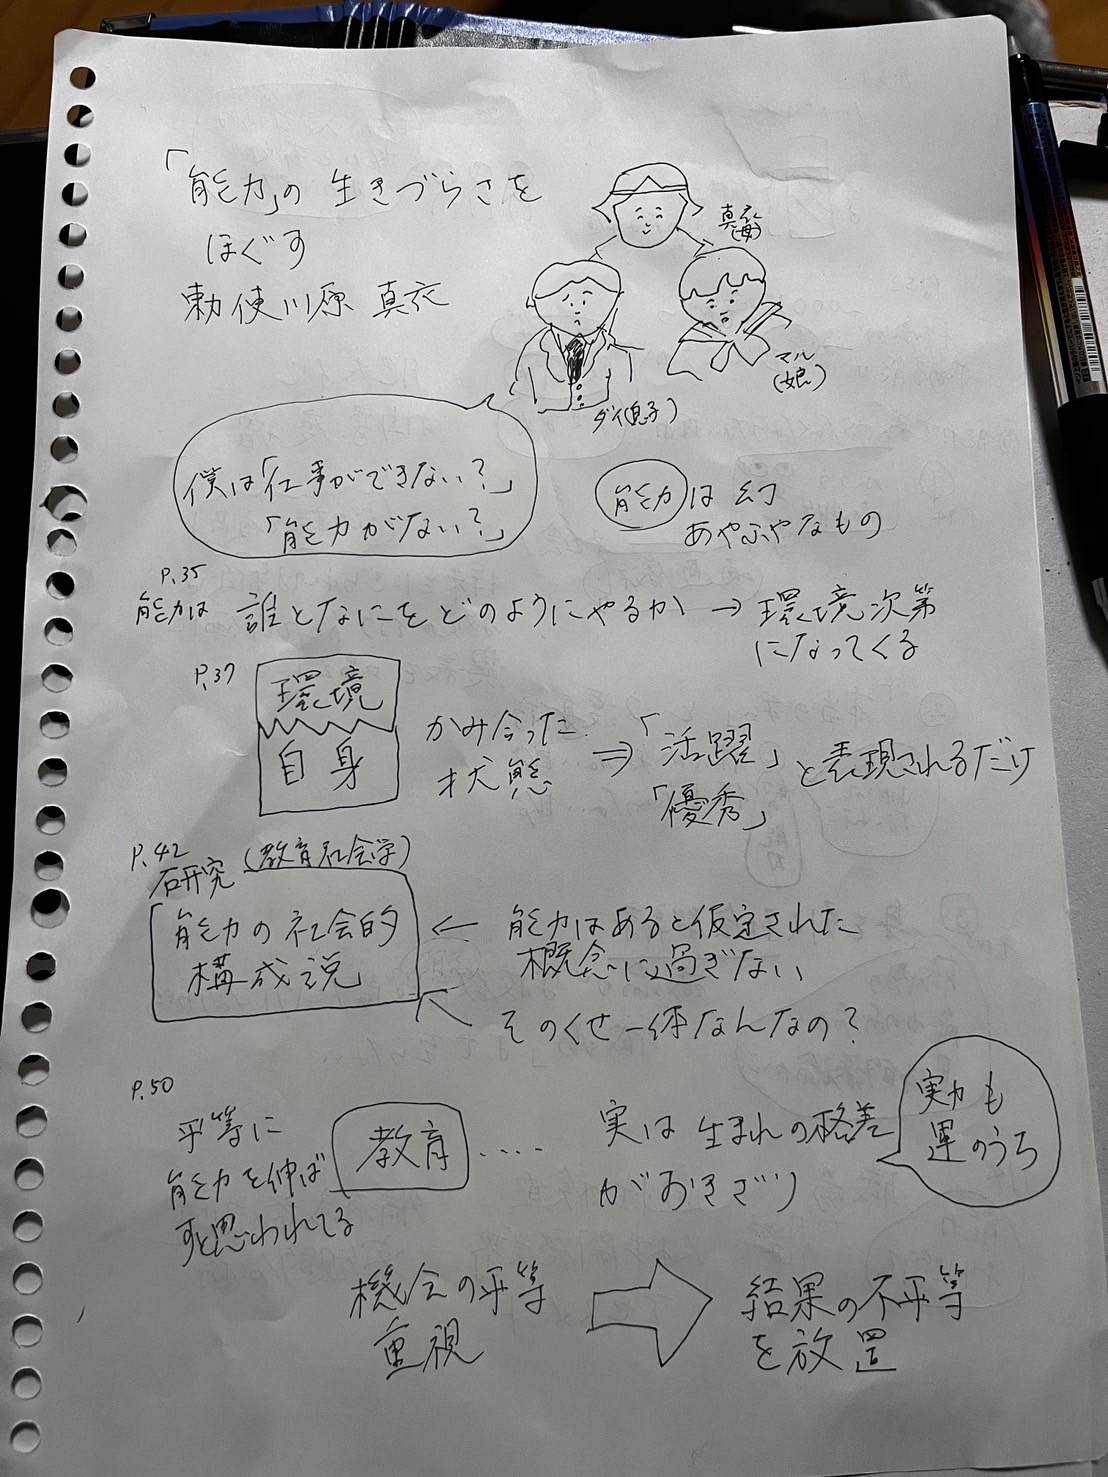 「能力」の生きづらさを
ほぐす
勅使川原 真衣
真衣
(母)
マル
(娘)
ダイ(息子)
僕は「仕事ができない?」
「能力がない?」
能力は幻
あやふやなもの
P.35
能力は 誰となにをどのようにやるか → 環境次第
になってくる
P.37
環境
自身
かみ合った
状態
⇒「活躍」
「優秀」
と表現されるだけ
P.42
研究(教育社会学)
「能力の社会的
構成説」
← 能力はあると仮定された
概念に過ぎない
そのくせ一体なんなの?
P.50
平等に
能力を伸ば
すと思われてる
教育....
実は生まれの格差
がおきざり
実力も
運のうち
機会の平等
重視
結果の不平等
を放置